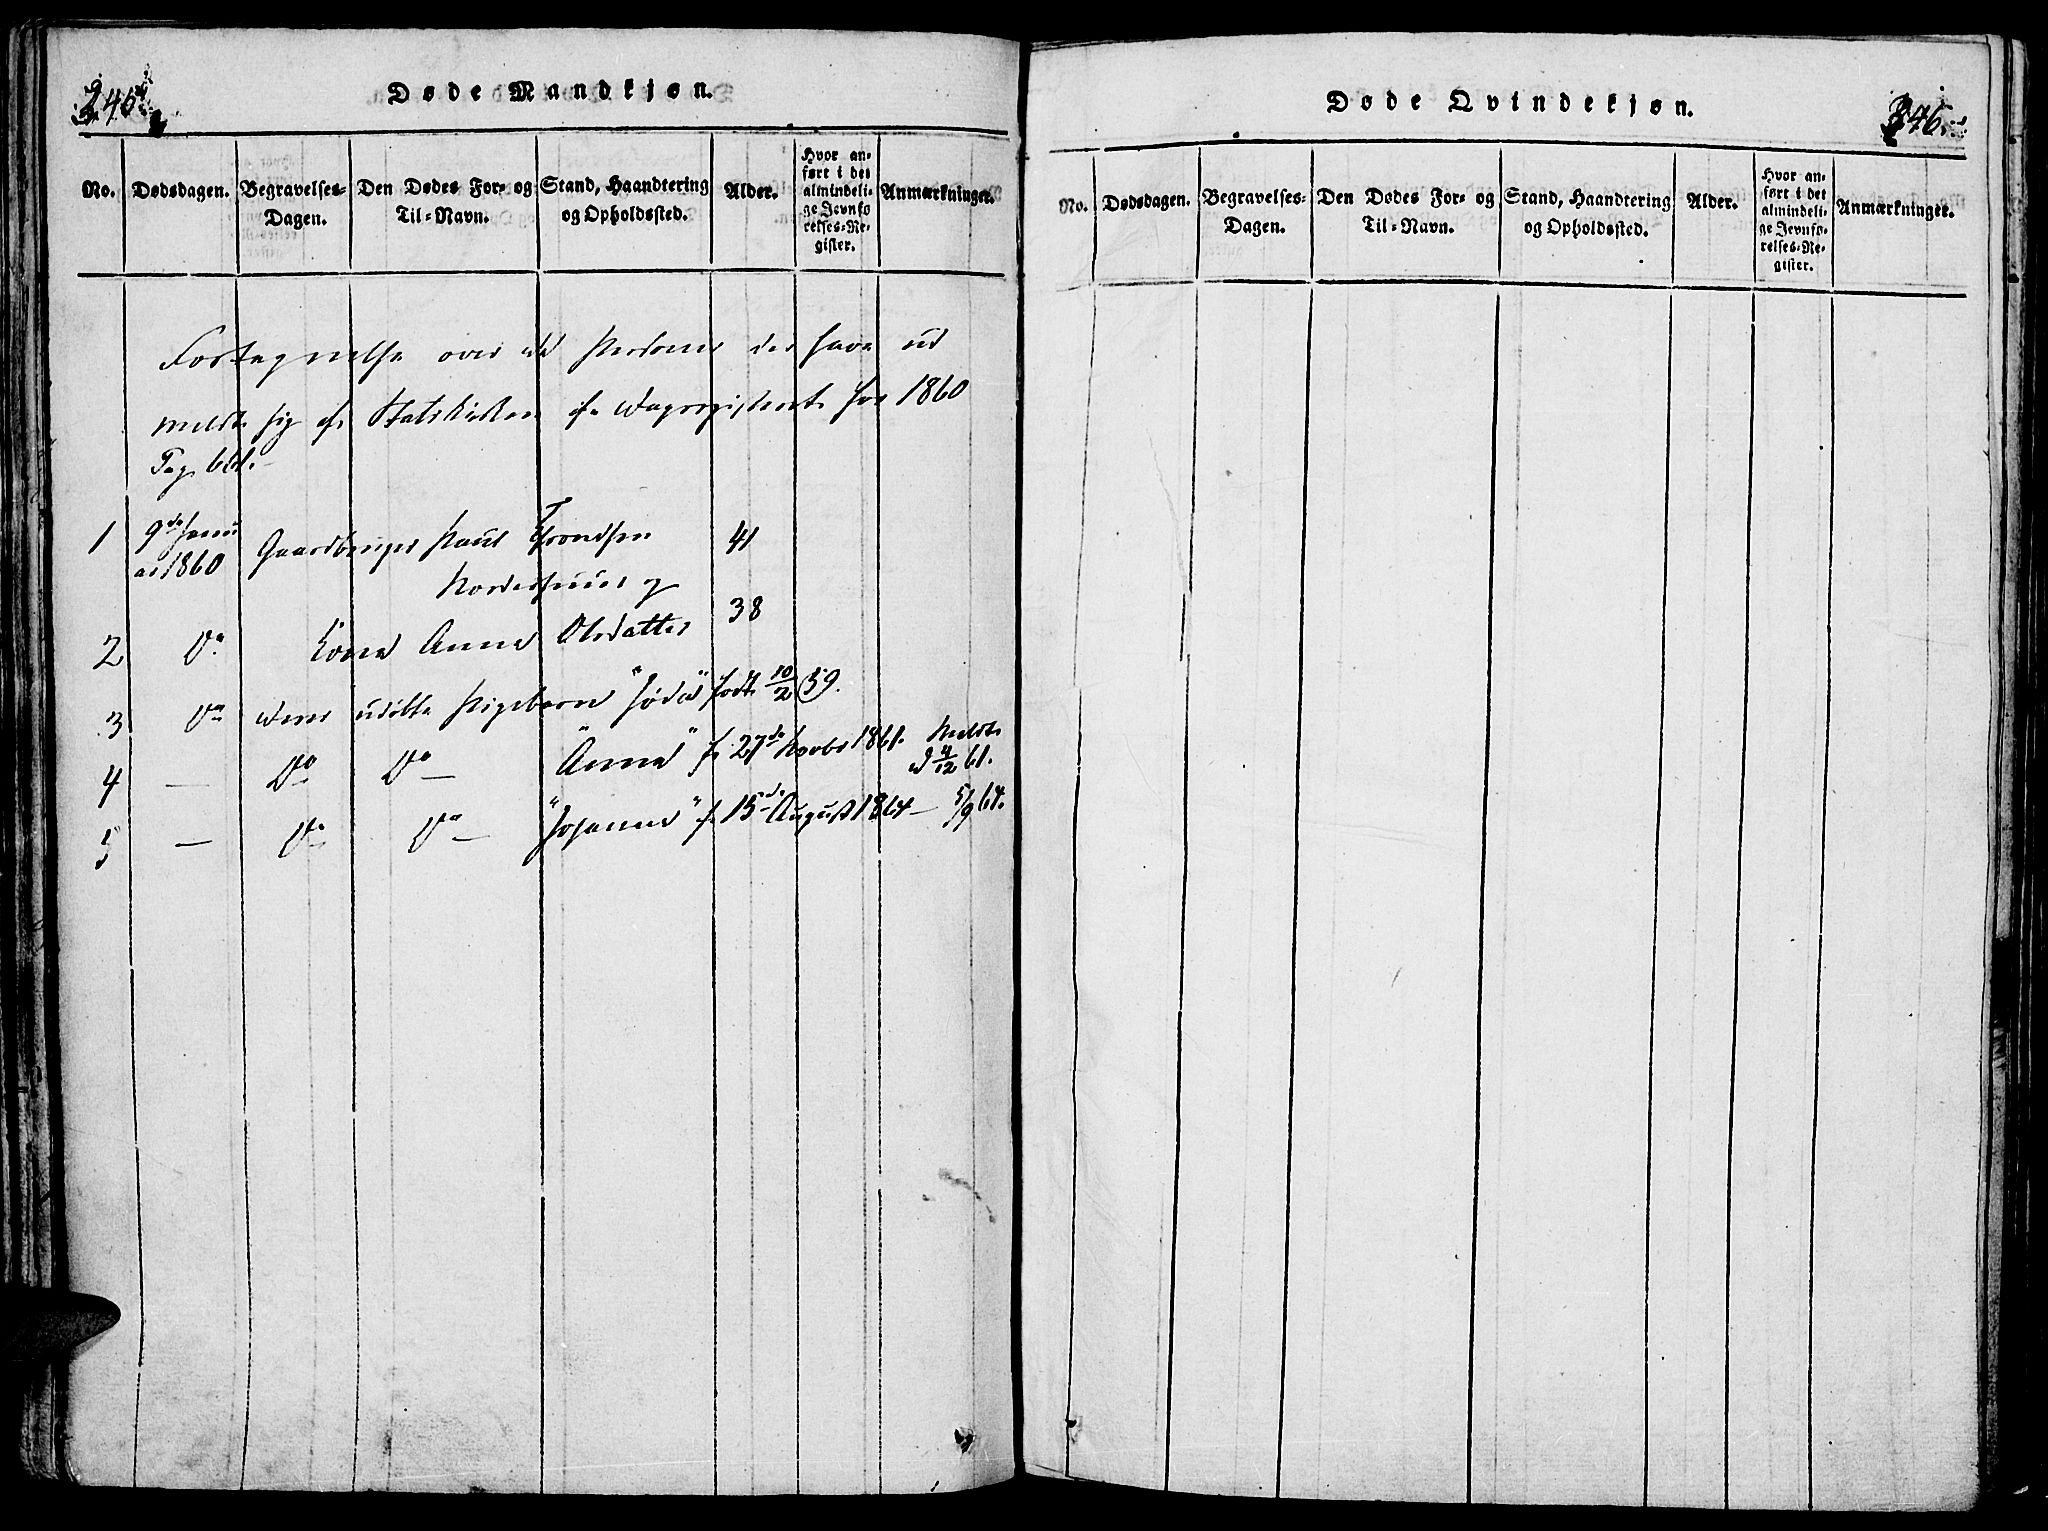 245
Døde Mandkjøn.
No.
Dødsdagen.
Begravelses-
Dagen.
Den Dødes For- og
Til-Navn.
Stand, Haandtering
og Opholdssted.
Alder.
Hvor an-
ført i det
almindeli-
ge Jevnfø
relses-Re-
gister.
Anmærkninger.
Fortegnelse over de Personer der have ud
meldt sig af Statskirken cfr Dagregisteret for 1860
Pag
1 9de Janu
ar 1860 Gaardbruger Paul Trondsen 41
Nordeshuus og
2 Do Kone Anna Olsdatter 38
3 Do deres udøbte Pigebarn "Jøda" født 10/2 59.
4 — Do Do — "Anna" f. 27de Novbr 1861. Meldt
d 4/12 61.
5 — Do Do — "Johanna" f. 15de August 1864 — 5/9 64.
Døde Qvindekjøn.
346
No.
Dødsdagen.
Begravelses-
Dagen.
Den Dødes For- og
Til-Navn.
Stand, Haandtering
og Opholdssted.
Alder.
Hvor an-
ført i det
almindeli-
ge Jevnfø-
relses-Re-
gister.
Anmærkninger.